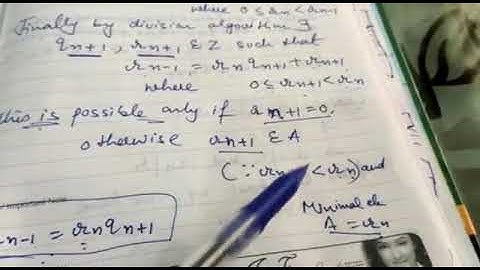 where 0 ≤ rn < rn-1
Finally by division algorithm ∃
qn+1, rn+1 ∈ Z such that
rn-1 = rn qn+1 + rn+1
where 0 ≤ rn+1 < rn
this is possible only if rn+1 = 0.
otherwise rn+1 ∈ A
(∵ rn < rn) and
A = rn
n-1 = rn qn+1